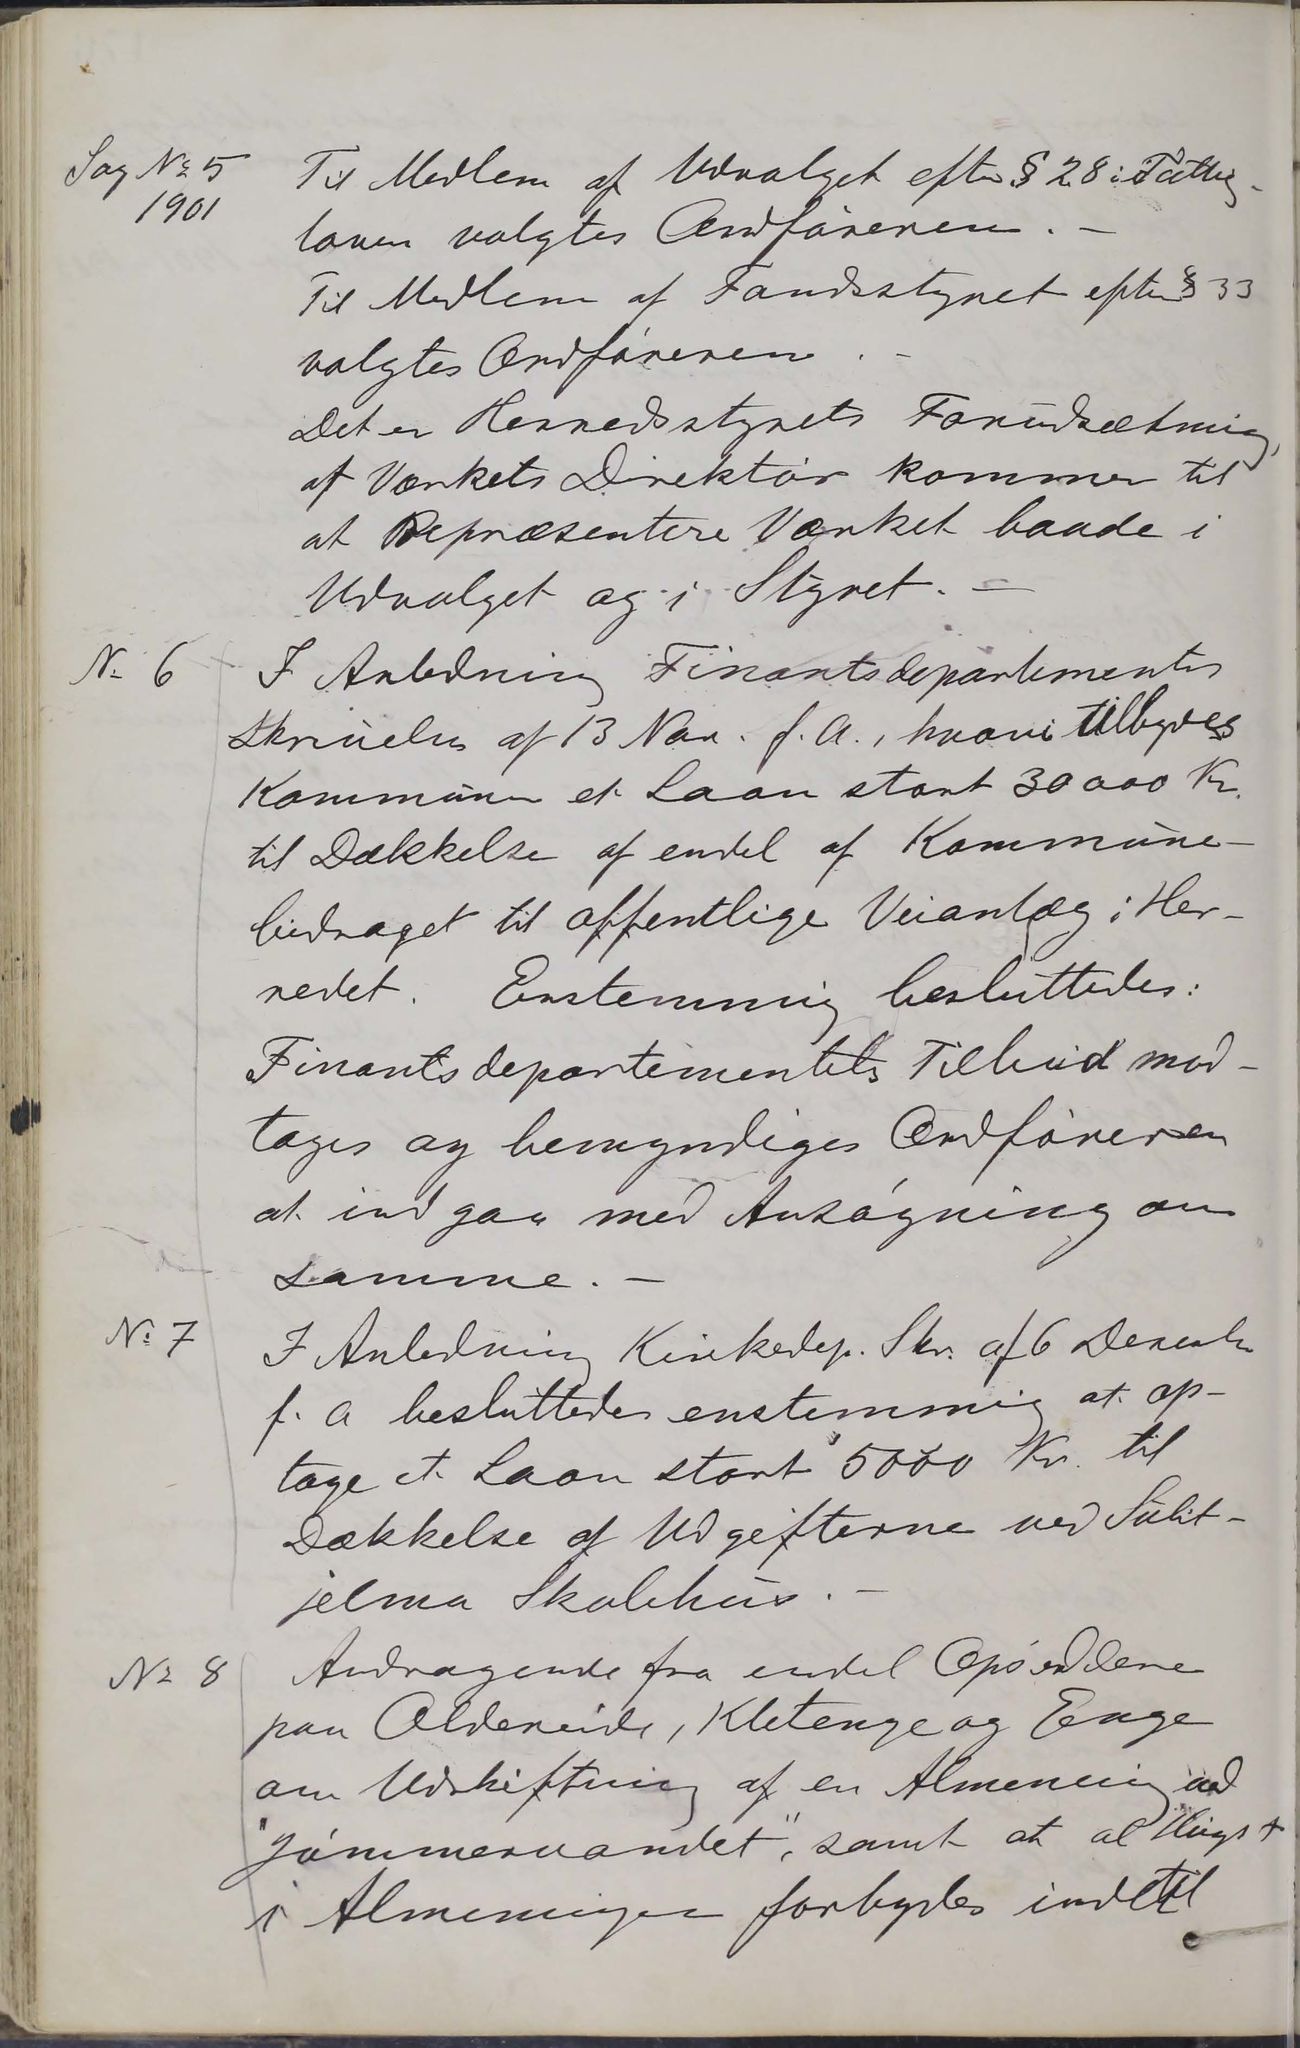 Sag No 5
1901
Til Medlem af Udvalget efter § 28 i Fattig-
loven valgtes Ordføreren. -
Til Medlem af Fondsstyret efter § 33
valgtes Ordføreren. -
Det er Herredsstyrets Forudsætning,
at Værkets Direktør kommer til
at Repræsentere Værket baade i
Udvalget og i Styret. -
No 6
I Anledning Finantsdepartementets
Skrivelse af 13 Nov. f. A., hvori tilbydes
Kommunen et Laan stort 30000 Kr.
til Dækkelse af endel af Kommune-
bidraget til offentlige Veianlæg i Her-
redet. Enstemmig besluttedes:
Finantsdepartementets Tilbud mod-
tages og bemyndiges Ordføreren
at indgaa med Ansøgning om
samme. -
No 7
I Anledning Kirkedep. Skr. af 6 Decemb
f. A besluttedes enstemmig at op-
tage et Laan stort 5000 Kr. til
Dækkelse af Udgifterne ved Sulit-
jelma Skolehus. -
No 8
Andragende fra endel Opsiddere
paa Oldereide, Kletenge og Enge
om Udskiftning af en Almening ved
"Jømmervandet", samt at al Hugst
i Almeningen forbydes indtil